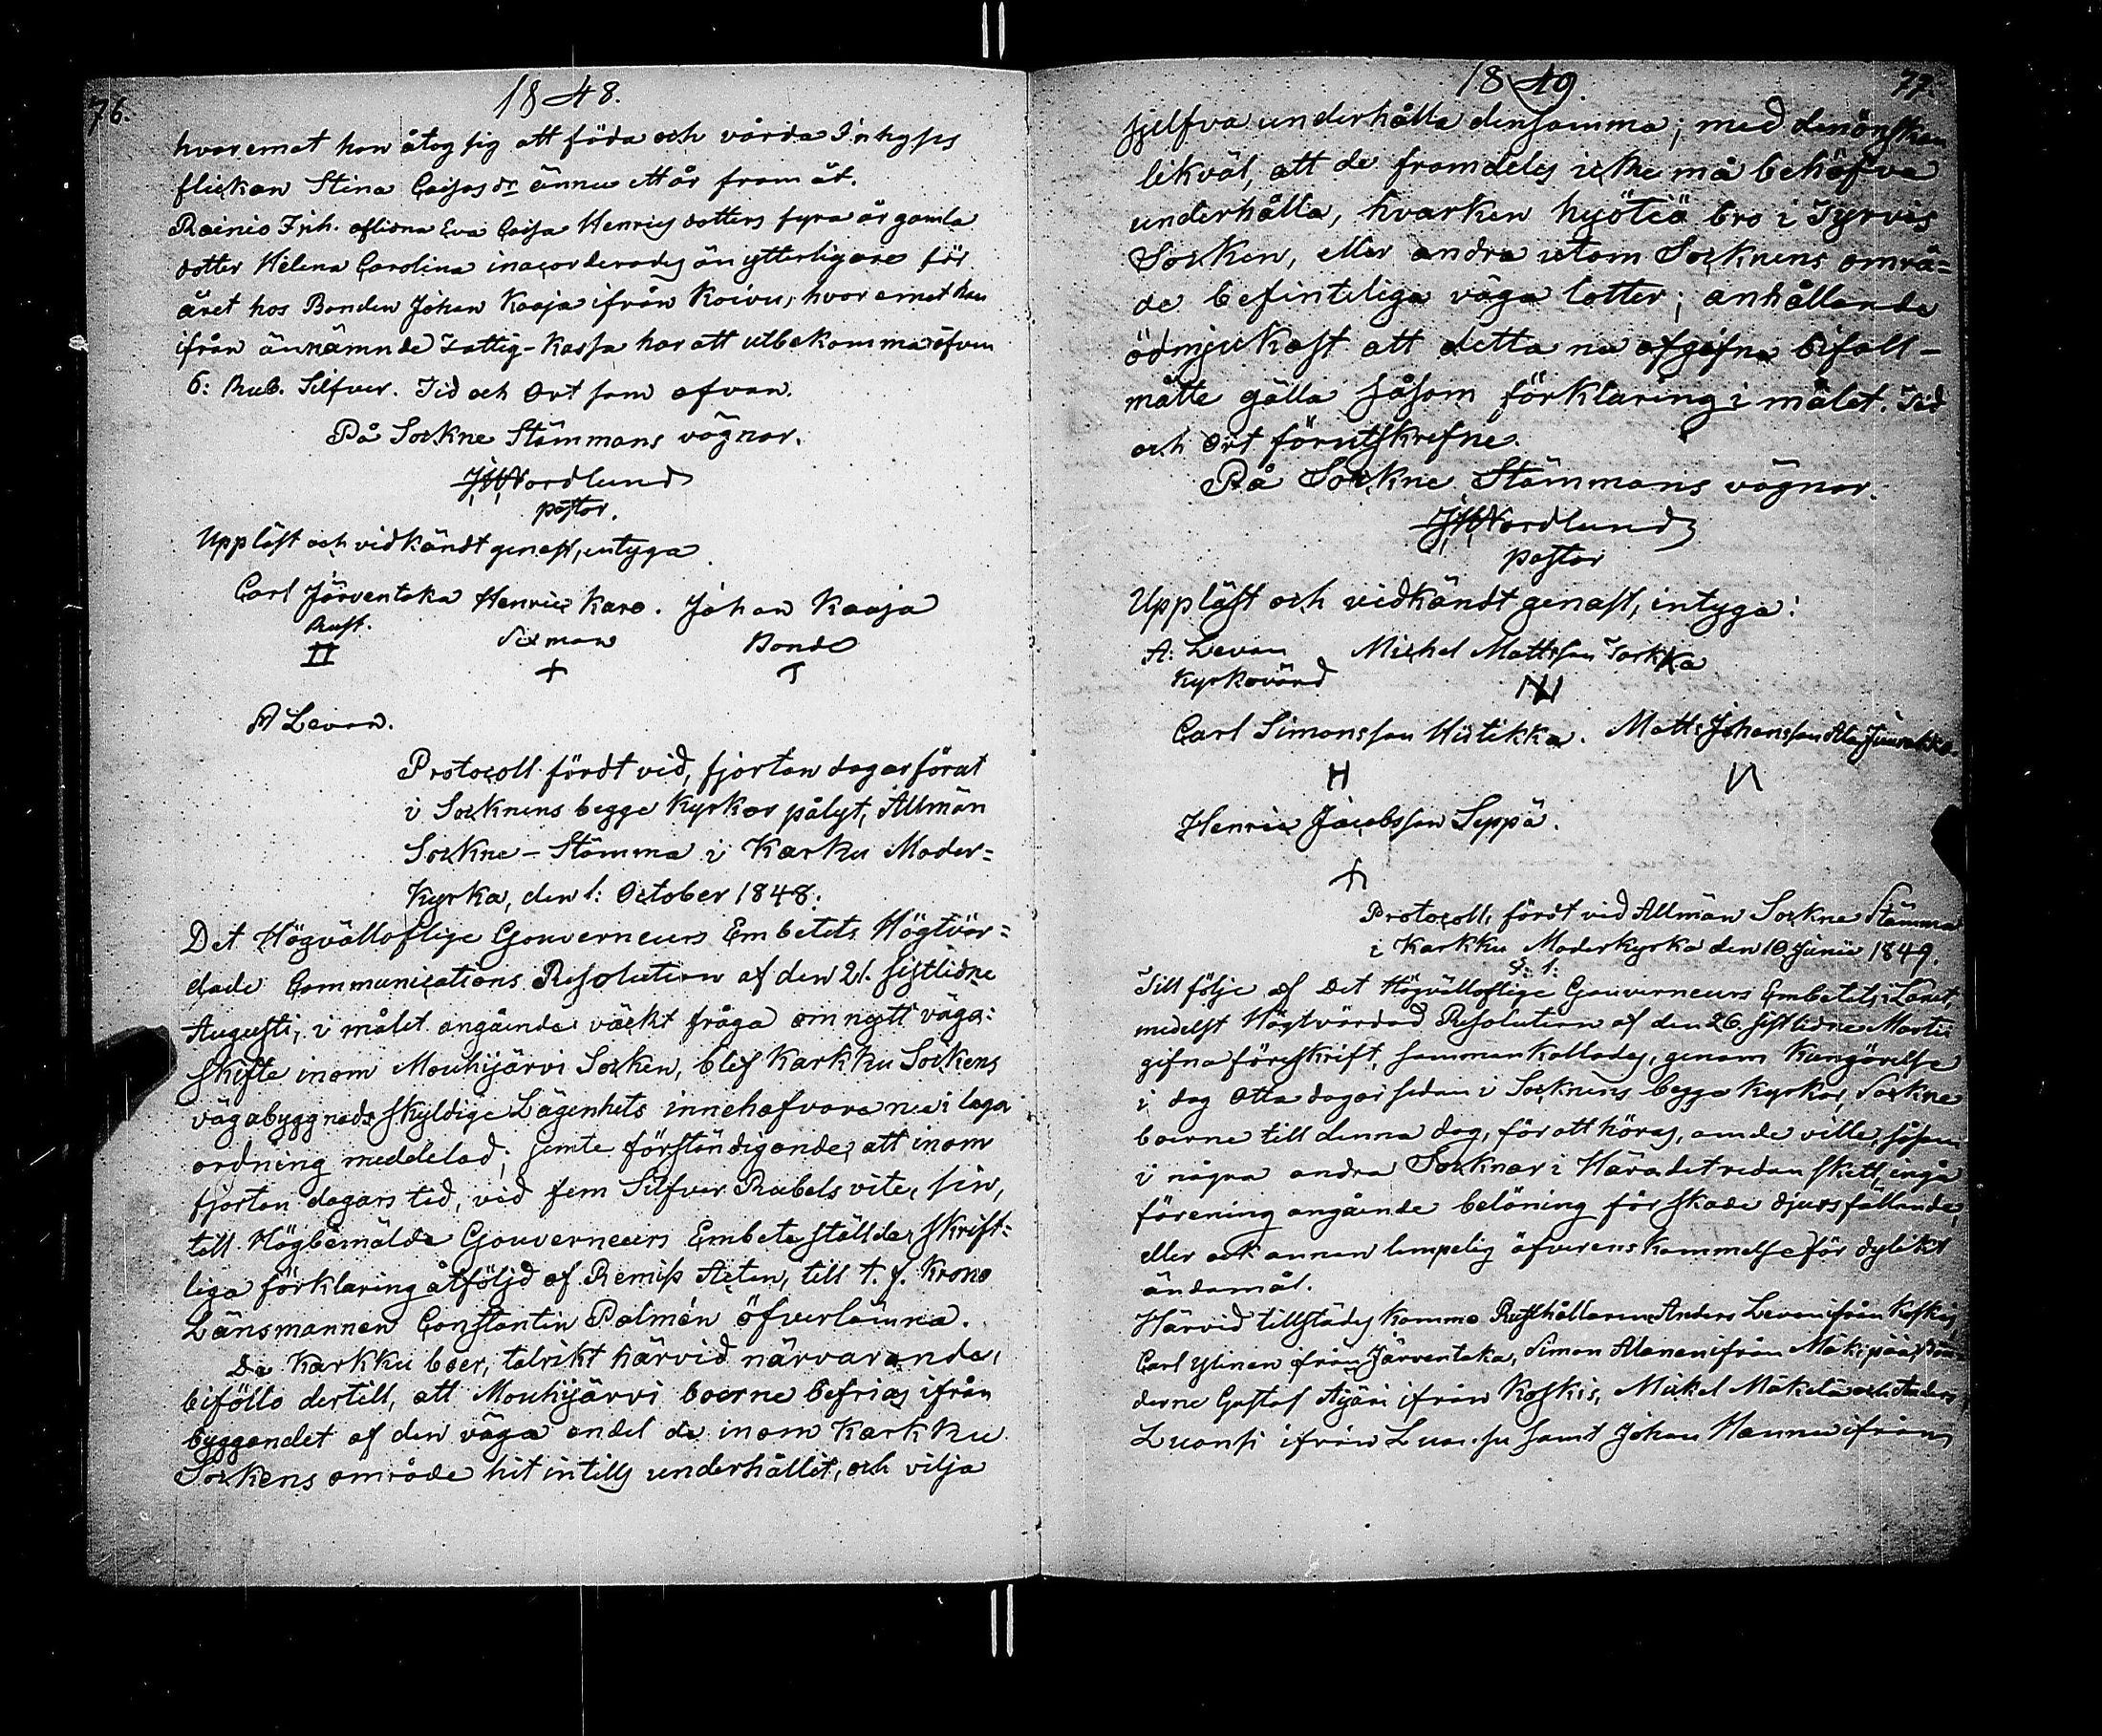 76.
1848.
hvaremot hon åtog sig att föda och vårda Inhyses
flickan Stina Caisas dr ännu ett år framåt.
Rainio Inh. aflidna Eva Caisa Henrics dotters fyra år gamla
dotter Helena Carolina inacorderades än ytterligare för
året hos Bonden Johan Kaaja ifrån Koivu, hvaremot han
ifrån ännämnde Fattig-Kassa har att utbekomma äfven
6: Rub. Silfver. Tid och Ort som ofvan.
På Sockne Stämmans vägnar.
JWNordlund
pastor.
Uppläst och vidkändt genast, intyga
Carl Järventaka Henric Karo. Johan Kaaja
Rust. Sexman Bonde
A Levan.
Protocoll fördt vid, fjorton dagar förut
i Socknens begge Kyrkor pålyst, Allmän
Sockne-Stämma i Karku Moder=
Kyrka, den 1: October 1848:
Det Högvälloflige Gouverneurs Embetets Högtvör=
dade Communications Resolution af den 21. sistlidne
Augusti, i målet angående väckt fråga om nytt väga=
skifte inom Mouhijärvi Socken, blef Karkku Sockens
vägabyggnads skyldige Lägenhets innehafvarene i laga
ordning meddelad; jemte förständigande, att inom
fjorton dagars tid, vid fem Silfver Rubels vite, sin,
till Högbemälde Gouverneurs Embete ställda, skrift=
liga förklaring åtföljd af Remiss Acten, till t. f. Krono
Länsmannen Constantin Palmén öfverlämna.
Da Karkku boer, talrikt härvid närvarande,
biföllo dertill, att Mouhijärvi boerne befrias ifrån
byggandet af den väga andel de inom Karkku
Sockens område hit intills underhållit, och vilja
77.
1849.
sjelfva underhålla densamma; med den önskan
likväl, att de framdeles icke må behöfva
underhålla, hvarken hyötiö bro i Tyrvis
Socken, eller andra utom Socknens områ=
de befinteliga väga lotter; anhållande
ödmjukast att detta nu afgifna bifall-
måtte gälla såsom förklaring i målet. Tid
och Ort förutskrefne.
På Sockne Stämmans vägnar.
JWNordlund
pastor
Uppläst och vidkändt genast, intyga:
A: Levan Michel Mattsson Torkka
Kyrkovärd
Carl Simonsson Hiitikka. Matts Johansson Ala
Henric Jacobsson Seppä.
Protocoll, fördt vid Allmän Sockne Stämma
i Karkku Moderkyrka den 10 Junii 1849.
§: 1:
Till följe af Det Högvälloflige Gouverneurs Embetets i Länet,
medelst Högtvördad Resolution af den 26. sistlidne Martii
gifna föreskrift, sammankallades, genom Kungörelse
i dag otta dagar sedan i Socknens begge Kyrkor, Sockne
boerne till denna dag, för att höras, om de ville, såsom
i några andra Socknar i Häradet redan skett, ingå
förening angående belöning för skade djurs fällande,
eller ock annan lempelig öfverenskommelse för dylikt
ändamål.
Härvid tillstädes kommo Rusthållarene Anders Levan ifrån Koskis,
Carl Ylinen ifrån Järventaka, Simon Alanen ifrån Mäkipää, Bön=
derne Gustaf Äijäri ifrån Koskis, Mickel Mäkelä och Anders
Luonsi ifrån Luonsi samt Johan Hannu ifrån